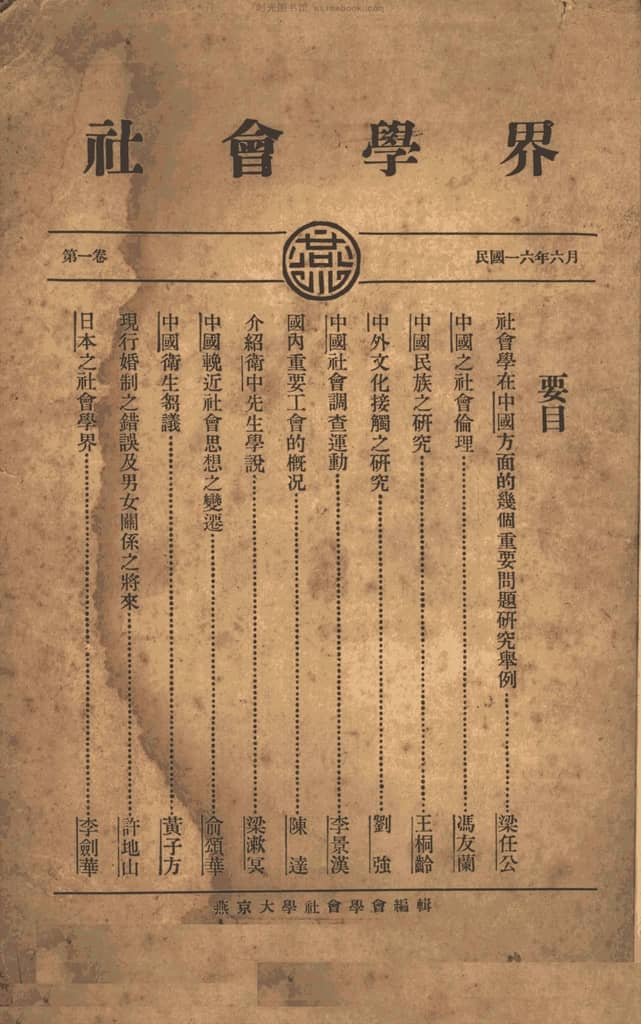 时光图书馆 sxlsebook.com
社會學界
第一卷
燕
民國一六年六月
要目
社會學在中國方面的幾個重要問題研究舉例 梁任公
中國之社會倫理 馮友蘭
中國民族之研究 王桐齡
中外文化接觸之研究 劉強
中國社會調查運動 李景漢
國內重要工會的概况 陳達
介紹衛中先生學說 梁漱冥
中國輓近社會思想之變遷 俞頌華
中國衛生芻議 黃子方
現行婚制之錯誤及男女關係之將來 許地山
日本之社會學界 李劍華
燕京大學社會學會編輯